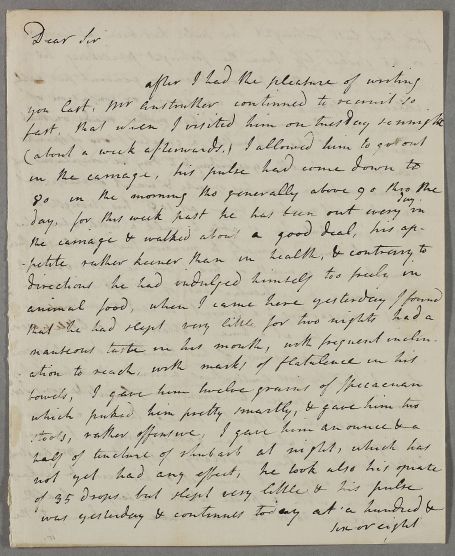 Dear Sir
after I had the pleasure of writing
you last, Mr Anstruther continued to recruit so
fast, that when I visited him on tuesday sennight
(about a week afterwards,) I allowed him to go out
in the carriage, his pulse had come down to
80 in the morning tho generally above 90 thro the
day, for this week past he has been out every day in
the carriage & walked about a good deal, his ap-
-petite rather keener than in health, & contrary to
directions he had indulged himself too freely in
animal food, when I came here yesterday I found
that he had slept very little for two nights had a
nauseous taste in his mouth, with frequent inclin-
-ation to reach, with marks of flatulence in his
bowels, I gave him twelve grains of Ipecacuan
which puked him pretty smartly, & gave him two
stools, rather offensive, I gave him an ounce & a
half of tincture of rhubarb at night, which has
not yet had any effect, he took also his opiate
of 35 drops, but slept very little & his pulse
was yesterday & continues today at a hundred &
six or eight